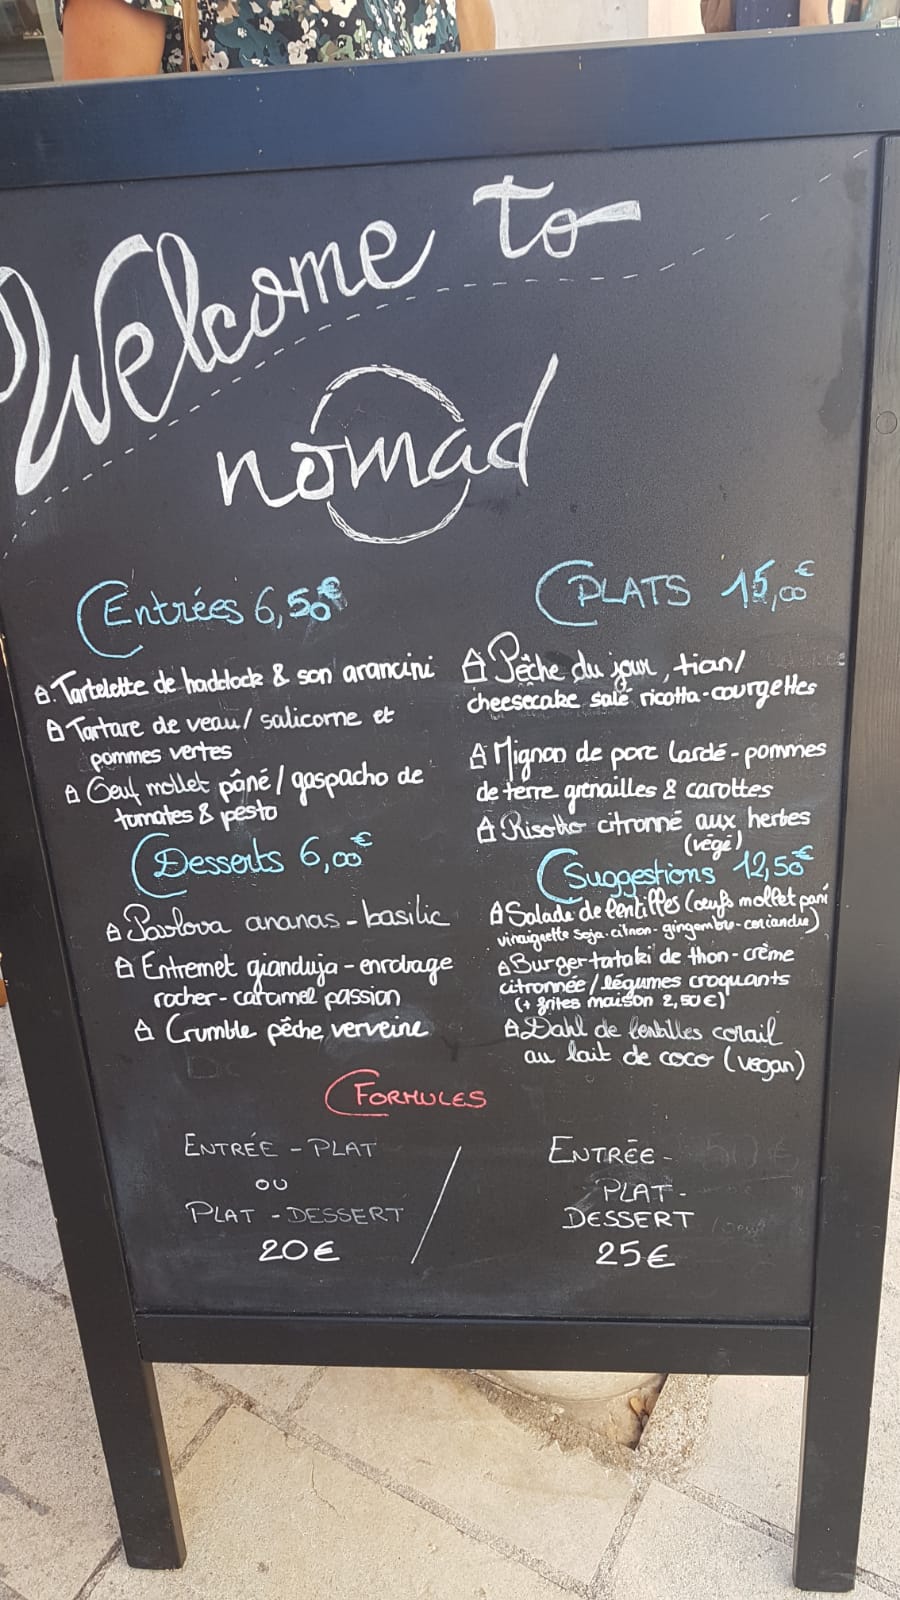 Welcome to
nomad
Entrées 6,50€
Tartelette de haddock & son arancini
Tartare de veau / salicorne et
pommes vertes
Oeuf mollet pâné / gaspacho de
tomates & pesto
Desserts 6,00€
Pavlova ananas - basilic
Entremet gianduja - enrobage
rocher - caramel passion
Crumble pêche verveine
PLATS 15,00€
Pêche du jour, tian /
cheesecake salé ricotta - courgettes
Mignon de porc lardé - pommes
de terre grenailles & carottes
Risotto citronné aux herbes
(végé)
Suggestions 12,50€
Salade de lentilles (œufs mollet pané
vinaigrette soja - citron - gingembre - coriandre)
Burger tataki de thon - crème
citronnée / légumes croquants
(+ frites maison 2,50€)
Dahl de lentilles corail
au lait de coco (vegan)
FORMULES
ENTRÉE - PLAT
OU
PLAT - DESSERT
20€
/
ENTRÉE -
PLAT -
DESSERT
25€